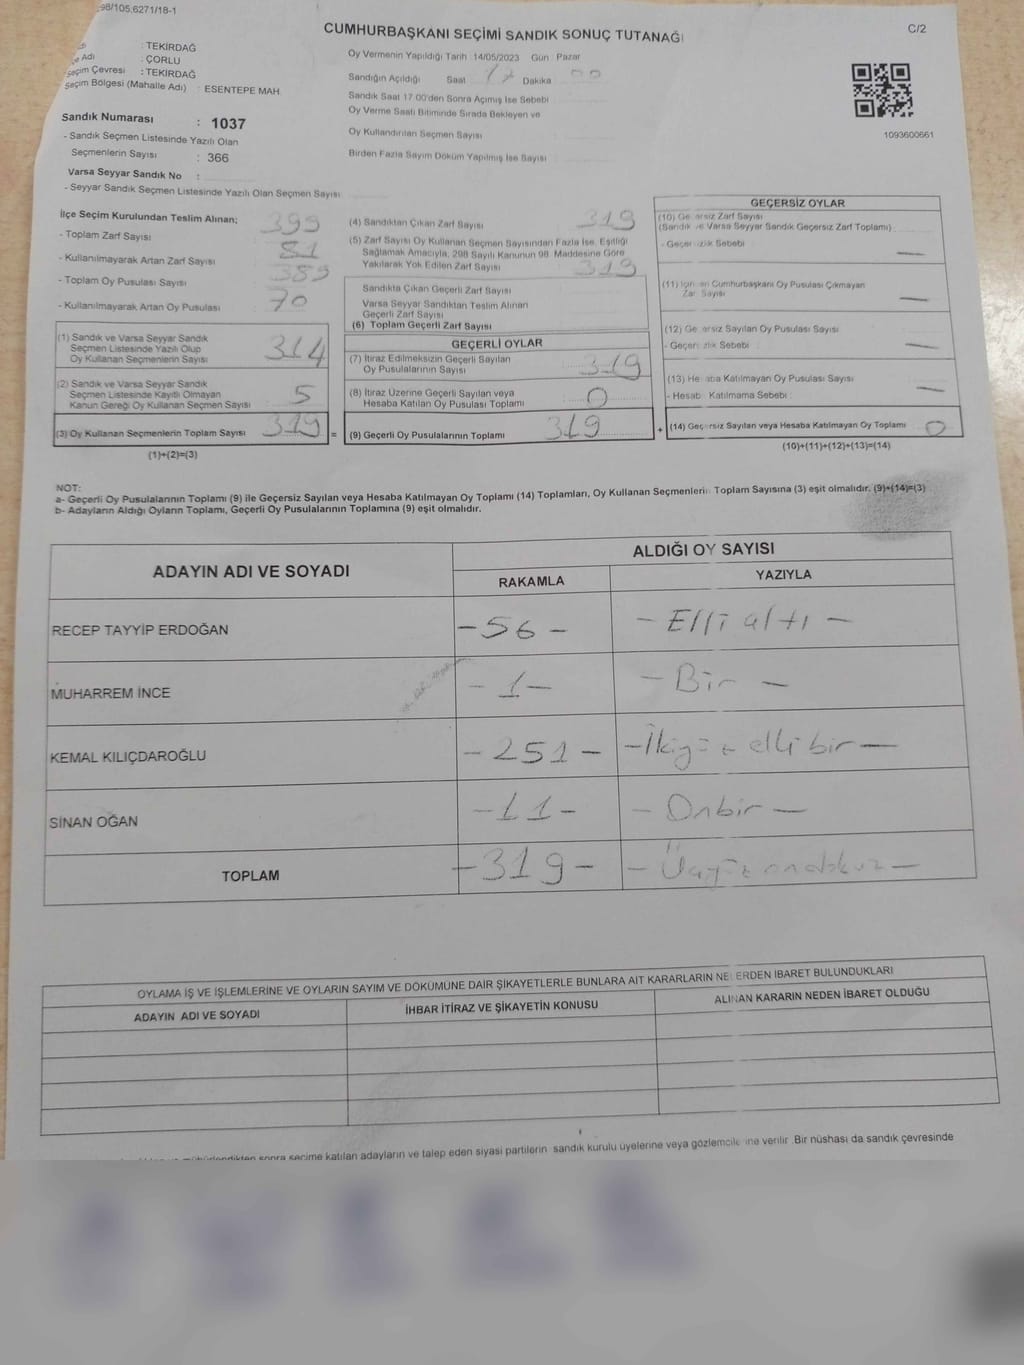 98/105.6271/18-1
CUMHURBAŞKANI SEÇİMİ SANDIK SONUÇ TUTANAĞI
C/2
: TEKİRDAĞ
Adı : ÇORLU
Seçim Çevresi : TEKİRDAĞ
Seçim Bölgesi (Mahalle Adı) : ESENTEPE MAH.
Sandık Numarası : 1037
- Sandık Seçmen Listesinde Yazılı Olan
Seçmenlerin Sayısı : 366
Varsa Seyyar Sandık No :
- Seyyar Sandık Seçmen Listesinde Yazılı Olan Seçmen Sayısı
Oy Vermenin Yapıldığı Tarih 14/05/2023 Gün Pazar
Sandığın Açıldığı Saat 17 Dakika 00
Sandık Saat 17.00'den Sonra Açılmış İse Sebebi
Oy Verme Saati Bitiminde Sırada Bekleyen ve
Oy Kullandırılan Seçmen Sayısı
Birden Fazla Sayım Döküm Yapılmış İse Sayısı
1093600661
İlçe Seçim Kurulundan Teslim Alınan;
- Toplam Zarf Sayısı 399
- Kullanılmayarak Artan Zarf Sayısı 81
- Toplam Oy Pusulası Sayısı 389
- Kullanılmayarak Artan Oy Pusulası 70
(1) Sandık ve Varsa Seyyar Sandık
Seçmen Listesinde Yazılı Olup
Oy Kullanan Seçmenlerin Sayısı 314
(2) Sandık ve Varsa Seyyar Sandık
Seçmen Listesinde Kayıtlı Olmayan
Kanun Gereği Oy Kullanan Seçmen Sayısı 5
(3) Oy Kullanan Seçmenlerin Toplam Sayısı 319 =
(1)+(2)=(3)
(4) Sandıktan Çıkan Zarf Sayısı 319
(5) Zarf Sayısı Oy Kullanan Seçmen Sayısından Fazla İse, Eşitliği
Sağlamak Amacıyla, 298 Sayılı Kanunun 98. Maddesine Göre
Yakılarak Yok Edilen Zarf Sayısı 319
Sandıkta Çıkan Geçerli Zarf Sayısı
Varsa Seyyar Sandıktan Teslim Alınan
Geçerli Zarf Sayısı
(6) Toplam Geçerli Zarf Sayısı
GEÇERLİ OYLAR
(7) İtiraz Edilmeksizin Geçerli Sayılan
Oy Pusulalarının Sayısı 319
(8) İtiraz Üzerine Geçerli Sayılan veya
Hesaba Katılan Oy Pusulası Toplamı 0
(9) Geçerli Oy Pusulalarının Toplamı 319 +
GEÇERSİZ OYLAR
(10) Geçersiz Zarf Sayısı
(Sandık ve Varsa Seyyar Sandık Geçersiz Zarf Toplamı)
- Geçersizlik Sebebi —
(11) İçinden Cumhurbaşkanı Oy Pusulası Çıkmayan
Zarf Sayısı —
(12) Geçersiz Sayılan Oy Pusulası Sayısı
- Geçersizlik Sebebi —
(13) Hesaba Katılmayan Oy Pusulası Sayısı
- Hesaba Katılmama Sebebi —
(14) Geçersiz Sayılan veya Hesaba Katılmayan Oy Toplamı 0
(10)+(11)+(12)+(13)=(14)
NOT:
a- Geçerli Oy Pusulalarının Toplamı (9) ile Geçersiz Sayılan veya Hesaba Katılmayan Oy Toplamı (14) Toplamları, Oy Kullanan Seçmenlerin Toplam Sayısına (3) eşit olmalıdır. (9)+(14)=(3)
b- Adayların Aldığı Oyların Toplamı, Geçerli Oy Pusulalarının Toplamına (9) eşit olmalıdır.
ADAYIN ADI VE SOYADI
ALDIĞI OY SAYISI
RAKAMLA YAZIYLA
RECEP TAYYİP ERDOĞAN -56- -Elli altı-
MUHARREM İNCE -1- -Bir-
KEMAL KILIÇDAROĞLU -251- -İkiyüz elli bir-
SİNAN OĞAN -11- -Onbir-
TOPLAM -319- -Üçyüz ondokuz-
OYLAMA İŞ VE İŞLEMLERİNE VE OYLARIN SAYIM VE DÖKÜMÜNE DAİR ŞİKAYETLERLE BUNLARA AİT KARARLARIN NELERDEN İBARET BULUNDUKLARI
ADAYIN ADI VE SOYADI İHBAR İTİRAZ VE ŞİKAYETİN KONUSU ALINAN KARARIN NEDEN İBARET OLDUĞU
mühürlendikten sonra seçime katılan adayların ve talep eden siyasi partilerin sandık kurulu üyelerine veya gözlemcilerine verilir. Bir nüshası da sandık çevresinde